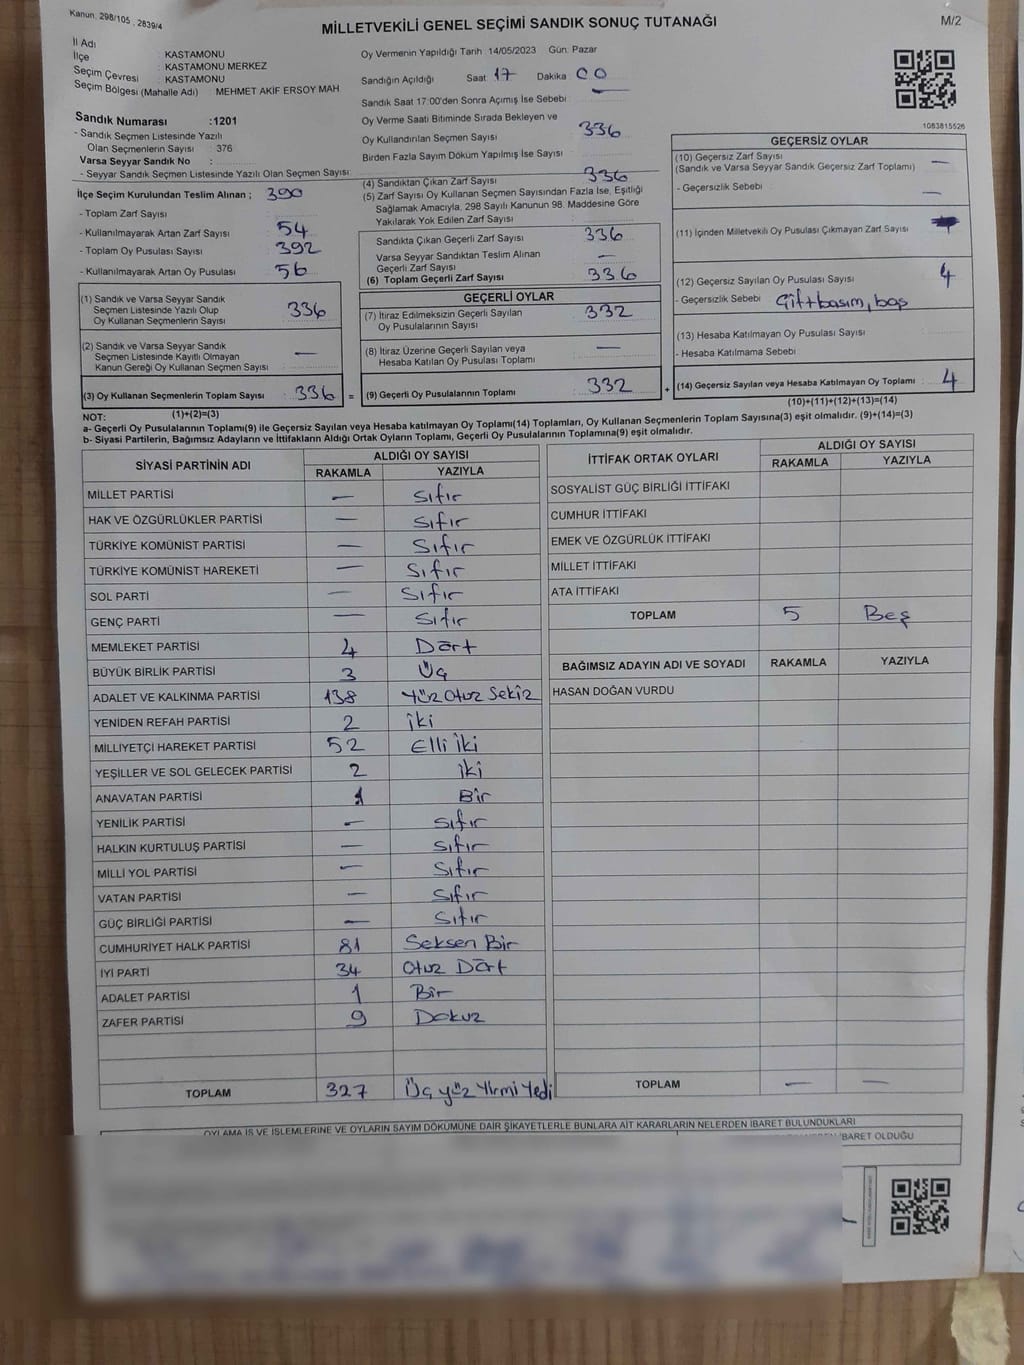 Kanun, 298/105 , 2839/4
MİLLETVEKİLİ GENEL SEÇİMİ SANDIK SONUÇ TUTANAĞI
M/2
İl Adı : KASTAMONU
İlçe : KASTAMONU MERKEZ
Seçim Çevresi : KASTAMONU
Seçim Bölgesi (Mahalle Adı) : MEHMET AKİF ERSOY MAH
Sandık Numarası :1201
- Sandık Seçmen Listesinde Yazılı
Olan Seçmenlerin Sayısı : 376
Varsa Seyyar Sandık No :
- Seyyar Sandık Seçmen Listesinde Yazılı Olan Seçmen Sayısı
Oy Vermenin Yapıldığı Tarih :14/05/2023 Gün: Pazar
Sandığın Açıldığı Saat 17 Dakika : 00
Sandık Saat 17:00'den Sonra Açımış İse Sebebi : —
Oy Verme Saati Bitiminde Sırada Bekleyen ve
Oy Kullandırılan Seçmen Sayısı : 336
Birden Fazla Sayım Döküm Yapılmış İse Sayısı :
1083815526
İlçe Seçim Kurulundan Teslim Alınan ; 390
- Toplam Zarf Sayısı :
- Kullanılmayarak Artan Zarf Sayısı : 54
- Toplam Oy Pusulası Sayısı : 392
- Kullanılmayarak Artan Oy Pusulası : 56
(1) Sandık ve Varsa Seyyar Sandık
Seçmen Listesinde Yazılı Olup
Oy Kullanan Seçmenlerin Sayısı : 336
(2) Sandık ve Varsa Seyyar Sandık
Seçmen Listesinde Kayıtlı Olmayan
Kanun Gereği Oy Kullanan Seçmen Sayısı : —
(3) Oy Kullanan Seçmenlerin Toplam Sayısı : 336 =
(1)+(2)=(3)
(4) Sandıktan Çıkan Zarf Sayısı : 336
(5) Zarf Sayısı Oy Kullanan Seçmen Sayısından Fazla İse, Eşitliği
Sağlamak Amacıyla, 298 Sayılı Kanunun 98. Maddesine Göre
Yakılarak Yok Edilen Zarf Sayısı :
Sandıkta Çıkan Geçerli Zarf Sayısı : 336
Varsa Seyyar Sandıktan Teslim Alınan
Geçerli Zarf Sayısı : —
(6) Toplam Geçerli Zarf Sayısı : 336
GEÇERLİ OYLAR
(7) İtiraz Edilmeksizin Geçerli Sayılan
Oy Pusulalarının Sayısı : 332
(8) İtiraz Üzerine Geçerli Sayılan veya
Hesaba Katılan Oy Pusulası Toplamı : —
(9) Geçerli Oy Pusulalarının Toplamı : 332 +
GEÇERSİZ OYLAR
(10) Geçersiz Zarf Sayısı : —
(Sandık ve Varsa Seyyar Sandık Geçersiz Zarf Toplamı)
- Geçersizlik Sebebi : —
(11) İçinden Milletvekili Oy Pusulası Çıkmayan Zarf Sayısı :
(12) Geçersiz Sayılan Oy Pusulası Sayısı : 4
- Geçersizlik Sebebi : Çift basım, boş
(13) Hesaba Katılmayan Oy Pusulası Sayısı :
- Hesaba Katılmama Sebebi :
(14) Geçersiz Sayılan veya Hesaba Katılmayan Oy Toplamı : 4
(10)+(11)+(12)+(13)=(14)
NOT:
a- Geçerli Oy Pusulalarının Toplamı(9) ile Geçersiz Sayılan veya Hesaba katılmayan Oy Toplamı(14) Toplamları, Oy Kullanan Seçmenlerin Toplam Sayısına(3) eşit olmalıdır. (9)+(14)=(3)
b- Siyasi Partilerin, Bağımsız Adayların ve İttifakların Aldığı Ortak Oyların Toplamı, Geçerli Oy Pusulalarının Toplamına(9) eşit olmalıdır.
SİYASİ PARTİNİN ADI ALDIĞI OY SAYISI
RAKAMLA YAZIYLA
MİLLET PARTİSİ — Sıfır
HAK VE ÖZGÜRLÜKLER PARTİSİ — Sıfır
TÜRKİYE KOMÜNİST PARTİSİ — Sıfır
TÜRKİYE KOMÜNİST HAREKETİ — Sıfır
SOL PARTİ — Sıfır
GENÇ PARTİ — Sıfır
MEMLEKET PARTİSİ 4 Dört
BÜYÜK BİRLİK PARTİSİ 3 Üç
ADALET VE KALKINMA PARTİSİ 138 Yüz Otuz Sekiz
YENİDEN REFAH PARTİSİ 2 iki
MİLLİYETÇİ HAREKET PARTİSİ 52 Elli iki
YEŞİLLER VE SOL GELECEK PARTİSİ 2 iki
ANAVATAN PARTİSİ 1 Bir
YENİLİK PARTİSİ — Sıfır
HALKIN KURTULUŞ PARTİSİ — Sıfır
MİLLİ YOL PARTİSİ — Sıfır
VATAN PARTİSİ — Sıfır
GÜÇ BİRLİĞİ PARTİSİ — Sıfır
CUMHURİYET HALK PARTİSİ 81 Seksen Bir
İYİ PARTİ 34 Otuz Dört
ADALET PARTİSİ 1 Bir
ZAFER PARTİSİ 9 Dokuz
TOPLAM 327 Üç yüz Yirmi Yedi
İTTİFAK ORTAK OYLARI ALDIĞI OY SAYISI
RAKAMLA YAZIYLA
SOSYALİST GÜÇ BİRLİĞİ İTTİFAKI
CUMHUR İTTİFAKI
EMEK VE ÖZGÜRLÜK İTTİFAKI
MİLLET İTTİFAKI
ATA İTTİFAKI
TOPLAM 5 Beş
BAĞIMSIZ ADAYIN ADI VE SOYADI RAKAMLA YAZIYLA
HASAN DOĞAN VURDU
TOPLAM — —
OYLAMA İŞ VE İŞLEMLERİNE VE OYLARIN SAYIM DÖKÜMÜNE DAİR ŞİKAYETLERLE BUNLARA AİT KARARLARIN NELERDEN İBARET BULUNDUKLARI
İBARET OLDUĞU